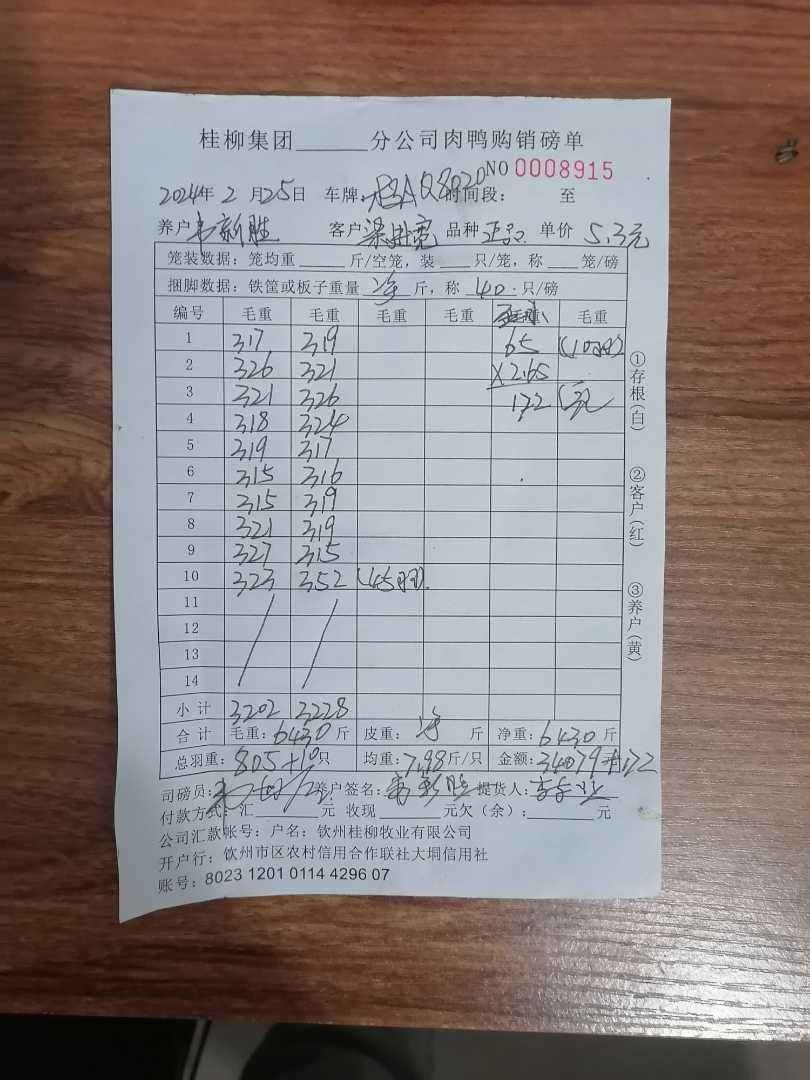 桂柳集团______分公司肉鸭购销磅单
NO 0008915
2024年 2 月 25日 车牌: Q8020 时间段: 至
养户 韦新胜 客户 梁进宽 品种 正品 单价 5.3元
笼装数据: 笼均重 ______ 斤/空笼, 装 ____ 只/笼, 称 ____ 笼/磅
捆脚数据: 铁筐或板子重量 净 斤, 称 40 只/磅
编号 毛重 毛重 毛重 毛重 毛重 毛重
1 317 319 65 (10羽)
2 326 321 ×2.65
3 321 326 172 元
4 318 324
5 319 317
6 315 316
7 315 319
8 321 319
9 327 315
10 323 352 (45羽)
11
12
13
14
小计 3202 3228
合计 毛重: 6430 斤 皮重: 净 斤 净重: 6430 斤
总羽重: 805+10只 均重: 7.98斤/只 金额: 34079+172
司磅员: 养户签名: 韦新胜 提货人:
付款方式: 汇______元 收现______元欠(余):______元
公司汇款帐号: 户名: 钦州桂柳牧业有限公司
开户行: 钦州市区农村信用合作联社大垌信用社
账号: 8023 1201 0114 4296 07
①存根(白)
②客户(红)
③养户(黄)